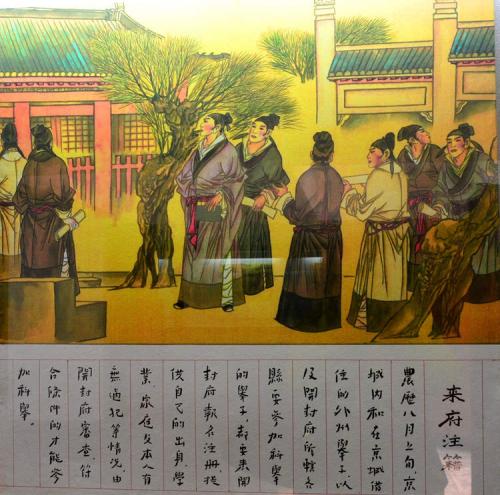 来府注籍
農歷八月上旬,京
城内和在京城借
住的外州舉子以
及開封府所轄各
縣要參加科舉
的舉子,都要来開
封府報名注册提
供自己的出身、學
業、家庭及本人有
無過犯等情况,由
開封府審查,符
合條件的才能參
加科舉。